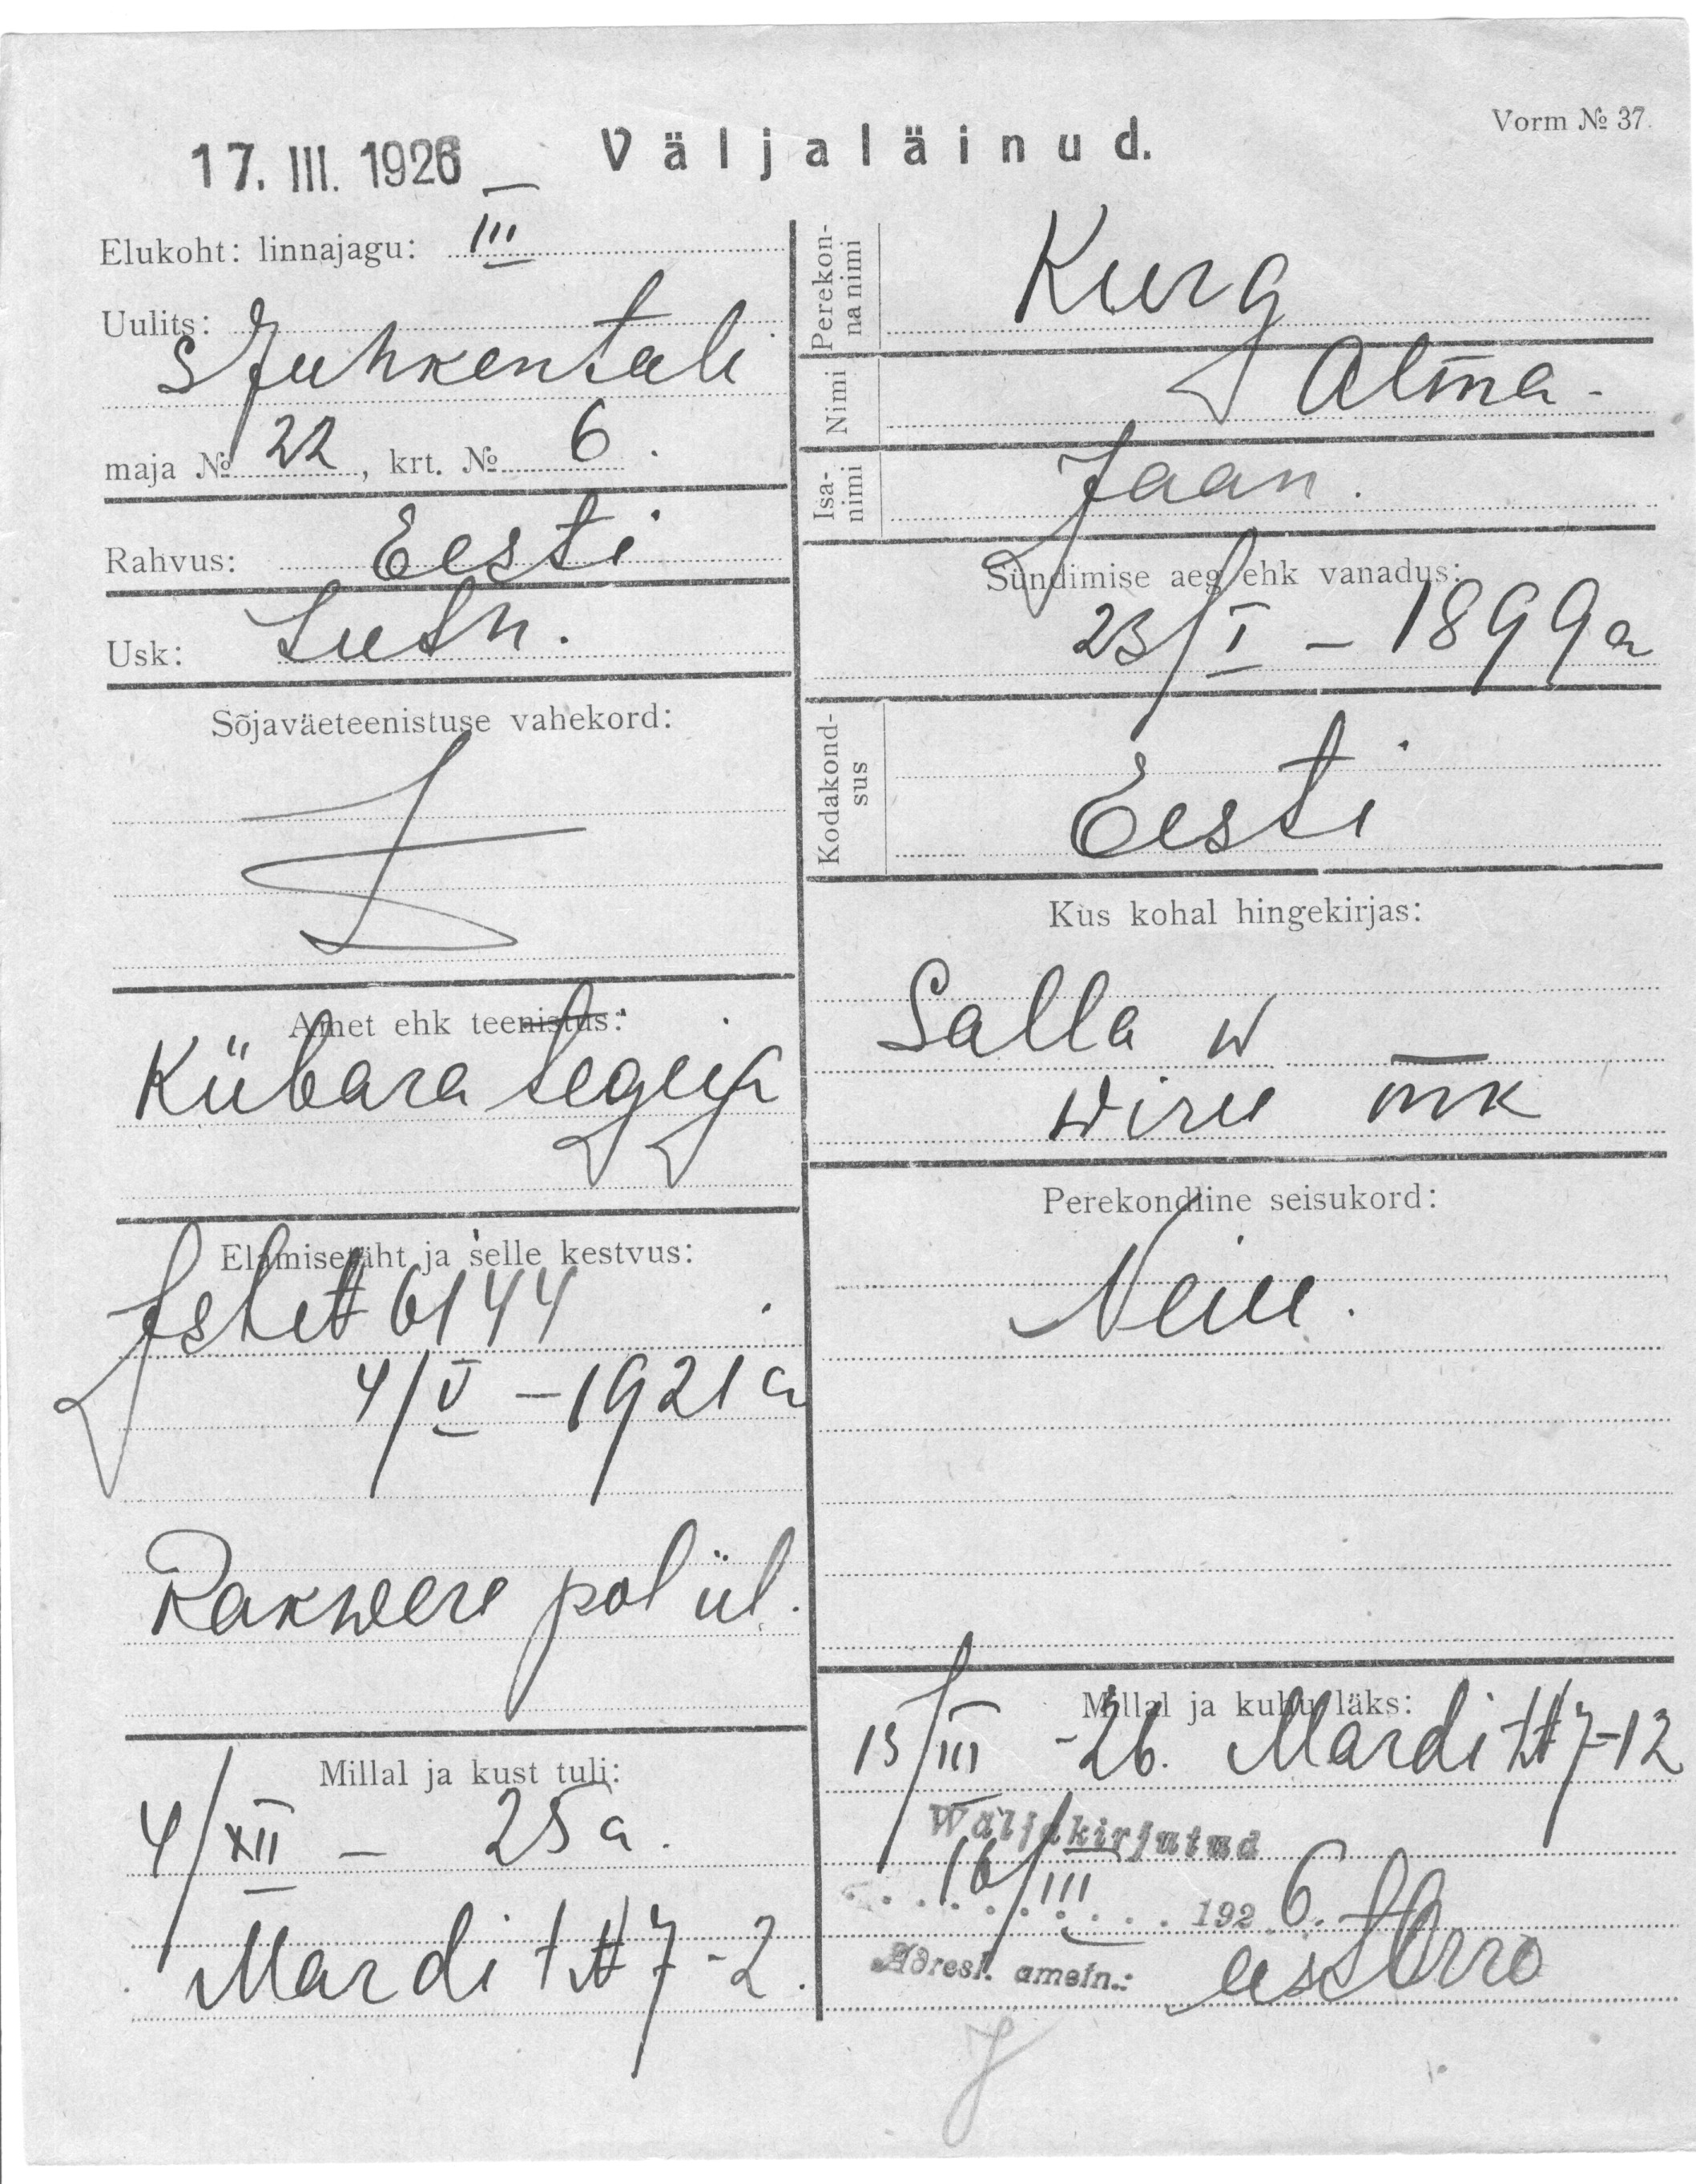 Vorm № 37.
17. III. 1926
Väljaläinud.
Elukoht: linnajagu: III
Uulits:
S Juhkentali
maja № 22, krt. № 6.
Rahvus: Eesti
Usk: Luth.
Sõjaväeteenistuse vahekord:
Amet ehk teenistus:
Kübara tegija
Elamisetäht ja selle kestvus:
6144
4/V – 1921 a
Rakweere pol ül.
Millal ja kust tuli:
4/XII – 25 a.
Mardi t № 7 - 2.
Perekonna nimi
Kurg
Nimi
Alma -
Isanimi
Jaan.
Sündimise aeg ehk vanadus:
23/I – 1899 a
Kodakondsus
Eesti
Kus kohal hingekirjas:
Salla w
Wiru mk
Perekondline seisukord:
Neiu.
Millal ja kuhu läks:
15/III - 26. Mardi t № 7-12
Wäljakirjutud
16/III 1926.
Adresl. ametn.: